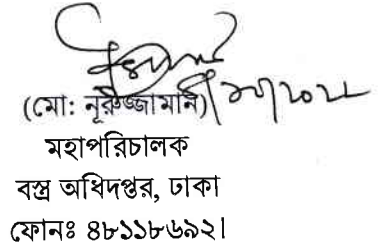 (মো: নূরুজ্জামান)
মহাপরিচালক
বস্ত্র অধিদপ্তর, ঢাকা
ফোনঃ ৪৮১১৮৬৯২।